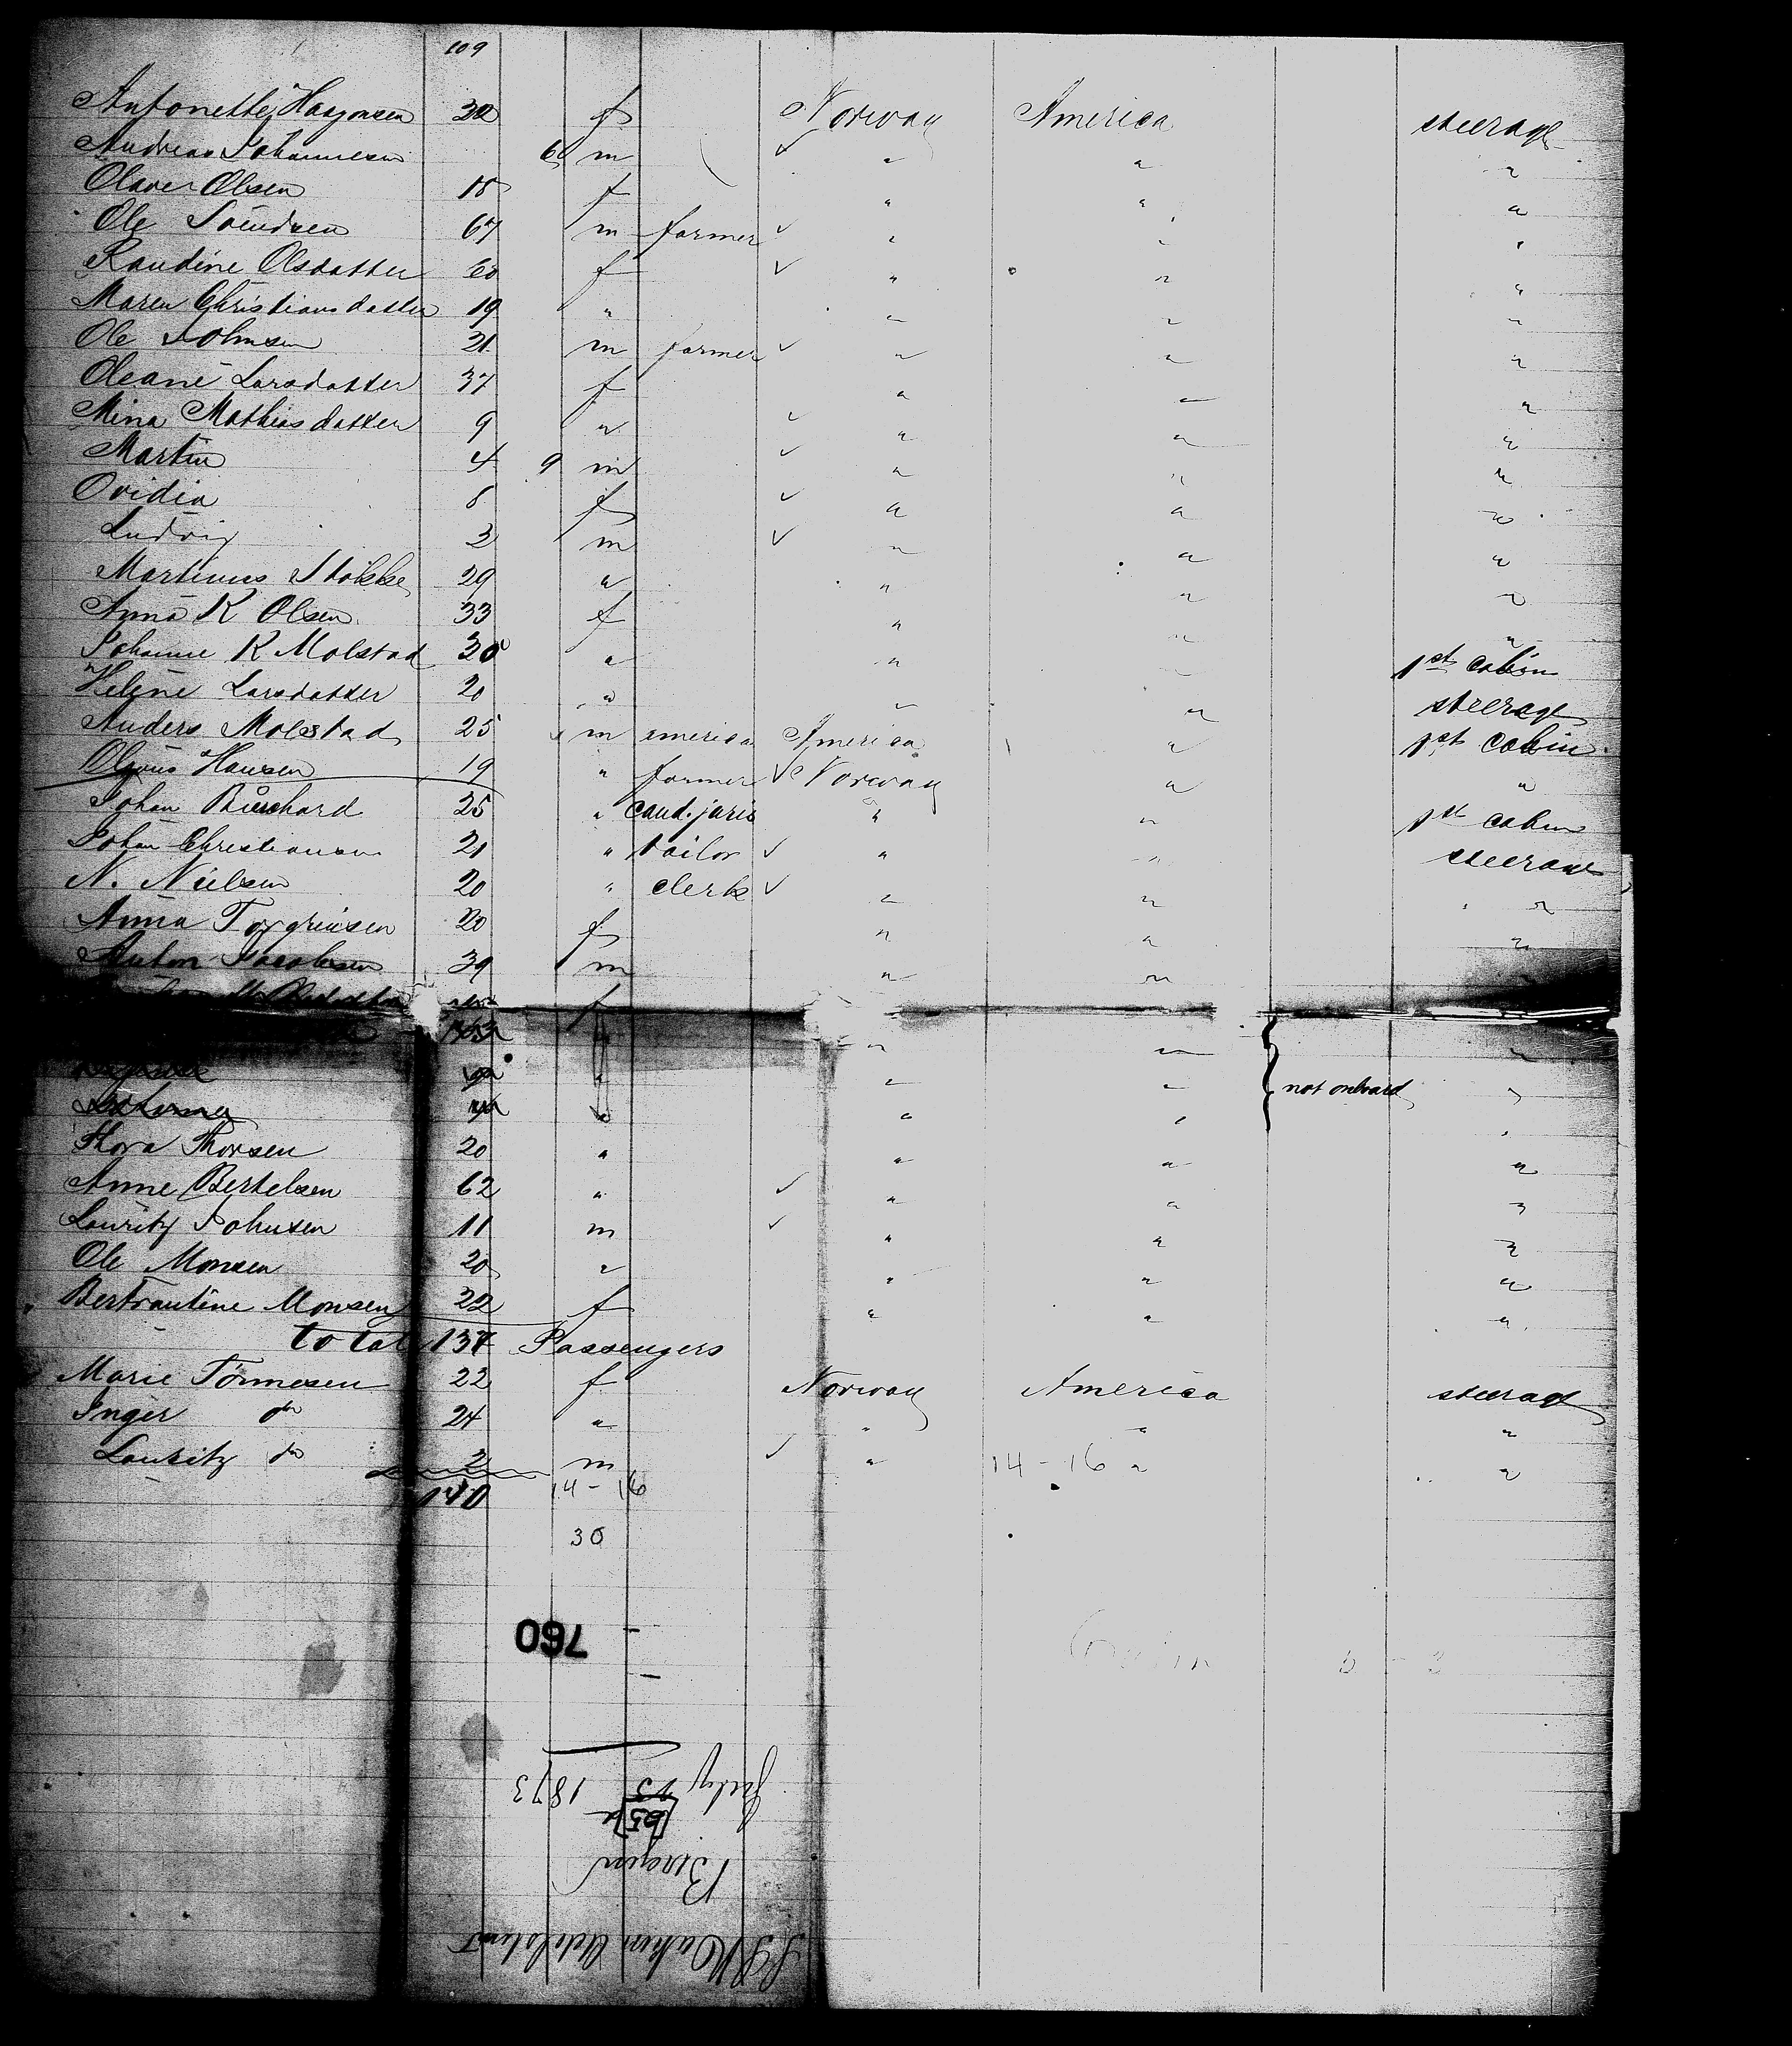 109
Antonette Haagensen 30 f Norway America steerage
Andreas Johannesen 6 m ✓ " " "
Olave Olsen 18 f " " "
Ole Svendsen 67 m farmer ✓ " " "
Randine Olsdatter 60 f ✓ " " "
Maren Christiansdatter 19 " " " "
Ole Johnsen 21 m farmer ✓ " " "
Oleane Larsdatter 37 f " " "
Mina Mathiasdatter 9 " ✓ " " "
Martin 4 9 m ✓ " " "
Ovidia 8 f ✓ " " "
Ludvig 3 m ✓ " " "
Martinus Stokke 29 " " " "
Anna K Olsen 33 f " " "
Johanne K Molstad 30 " " " 1st cabin
Helene Larsdatter 20 " " " steerage
Anders Molstad 25 m america America " 1st cabin
Olavus Hansen 19 " farmer ✓ Norway " "
Johan Buschard 25 " cand. juris " " 1st cabin
Johan Christiansen 21 " tailor ✓ " " steerage
N. Nielsen 20 " clerk ✓ " " "
Anna Torgrimsen 20 f " " "
Anton Jacobsen 39 m " " "
f
" " "
" " not onboard "
" " "
Thora Thorsen 20 " " " "
Anne Bertelsen 62 " ✓ " " "
Lauritz Johnsen 11 m ✓ " " "
Ole Monsen 20 " " " "
Bertrantine Monsen 22 f " " "
total 137 Passengers
Marie Tönnesen 22 f Norway America steerage
Inger do 24 " " " "
Lauritz do 2 m ✓ " 14-16 " "
140 14-16
30
760
Cabin
July 25 1873
Bergen
SS Hakon Adelsteen